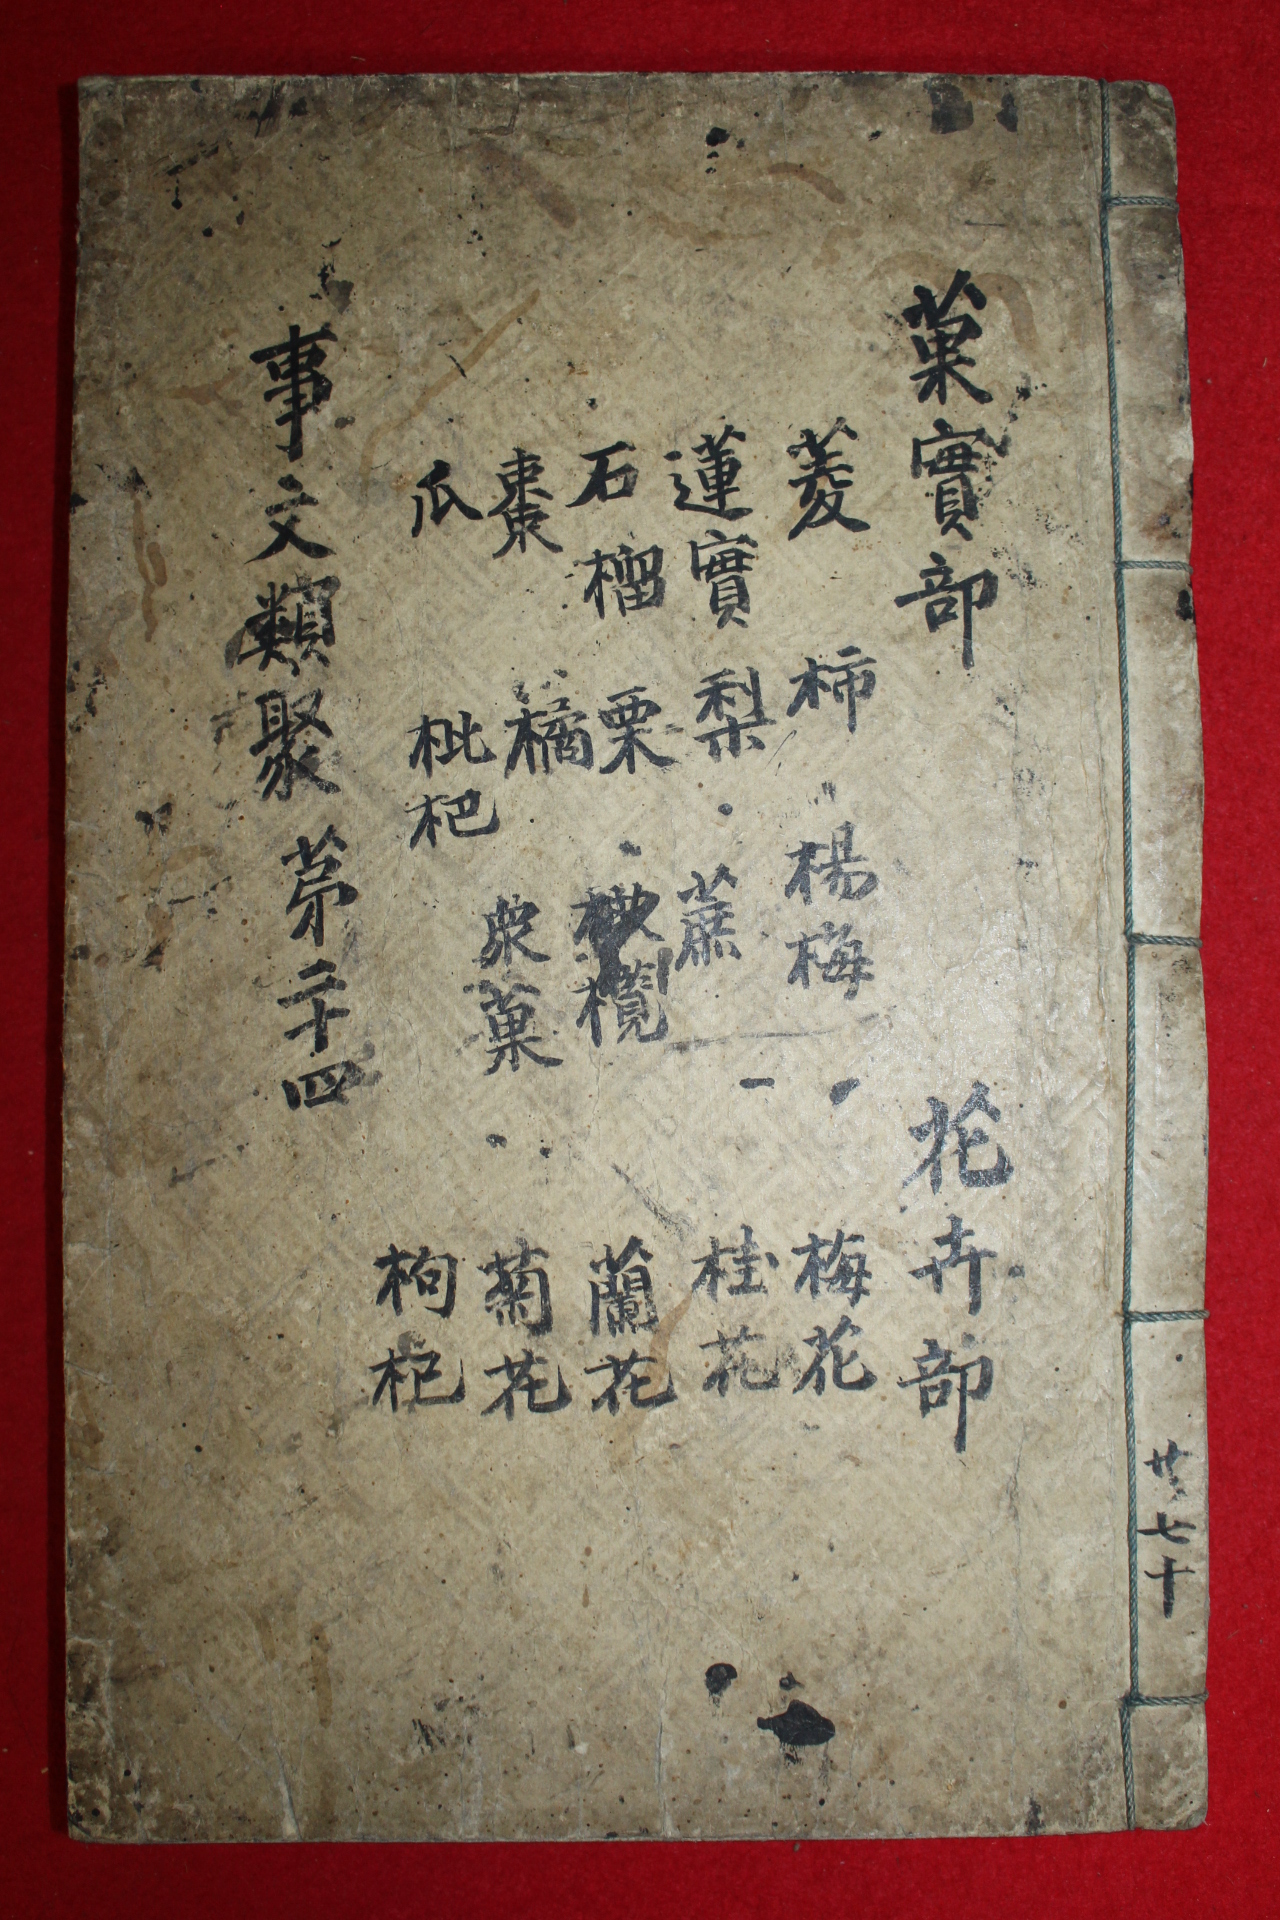 菓實部 花卉部
菱 柿 楊梅 梅花
蓮實 梨 蔗 桂花
石榴 栗 橄欖 蘭花
棗 橘 衆菓 菊花
瓜 枇杷 枸杞
事文類聚 第二十四
共七十